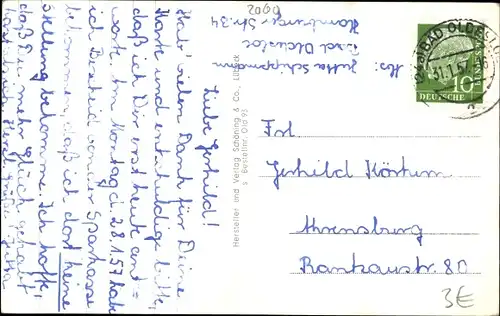 Liebe Gerhild!
Hab' vielen Dank für Deine
Karte und entschuldige bitte,
daß ich Dir erst heute ant=
worte. Am Montag d. 28.1.57 habe
ich Bescheid von der Sparkasse
bekommen, daß ich dort keine
Stellung bekomme. Ich hoffe,
daß Du mehr Glück gehabt
hast. Herzl. Grüße Jutta
Hersteller und Verlag Schöning & Co., Lübeck
Bestellnr. Old 95
Abs: Jutta Schippmann
Bad Oldesloe
Hamburger Str. 34
BAD OLDESLOE
31.1.57
DEUTSCHE
10
Frl.
Gerhild Körtum
Ahrensburg
Rantzaustr. 80
3€